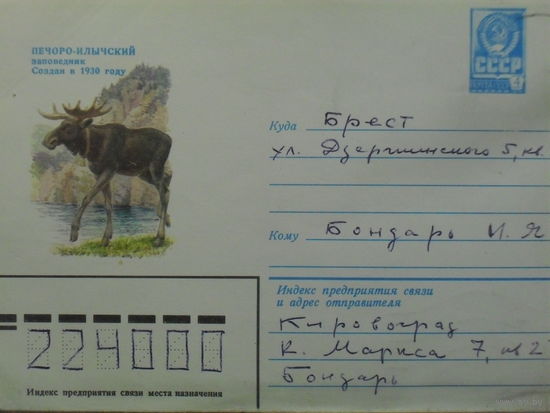 ПЕЧОРО-ИЛЫЧСКИЙ
заповедник
Создан в 1930 году
СССР
4
Куда Брест
ул. Дзержинского 5, кв.
Кому Бондарь И. Я
Индекс предприятия связи
и адрес отправителя
Кировоград
К. Маркса 7, кв 2
Бондарь
224000
Индекс предприятия связи места назначения